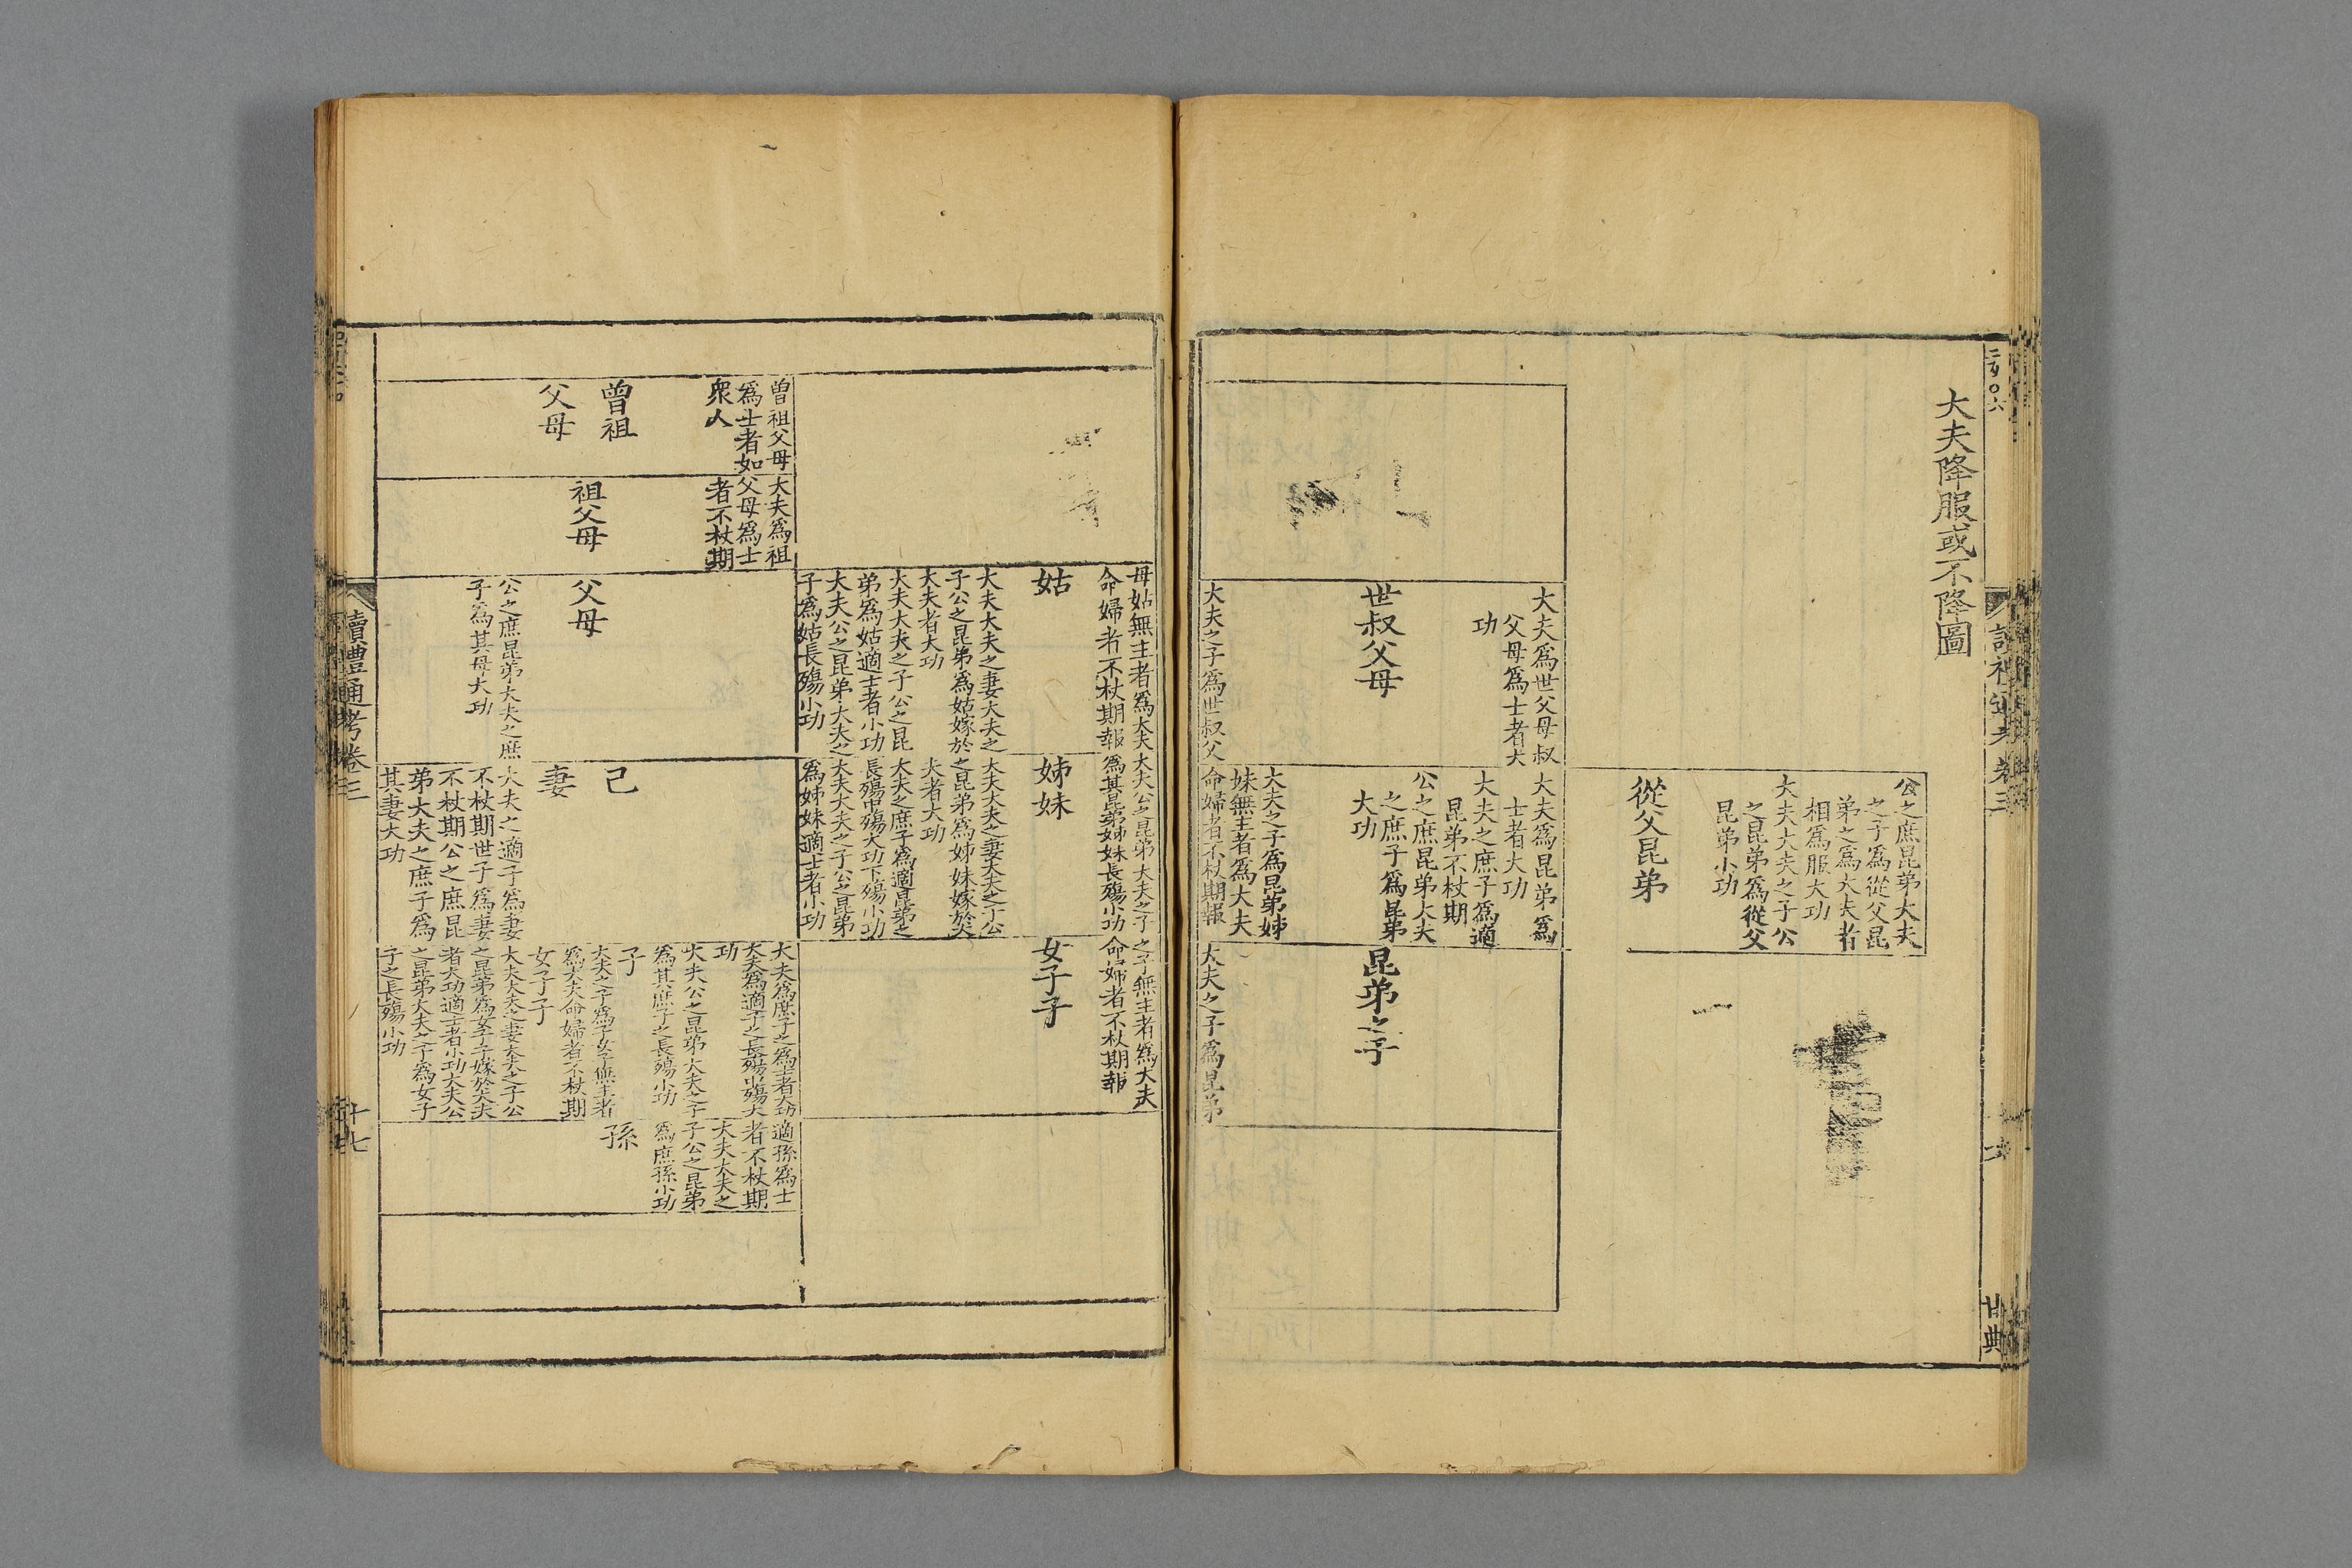 大夫降服或不降圖
公之庶昆弟大夫
之子爲從父昆
弟之爲大夫者
相爲服大功
大夫大夫之子公
之昆弟爲從父
昆弟小功
從父昆弟
大夫爲世父母叔
父母爲士者大
功
世叔父母
大夫之子爲世叔父
大夫爲昆弟爲
士者大功
大夫之庶子爲適
昆弟不杖期
公之庶昆弟大夫
之庶子爲昆弟
大功
大夫之子爲昆弟姊
妹無主者爲大夫
命婦者不杖期報
昆弟之子
大夫之子爲昆弟
母姑無主者爲大夫
命婦者不杖期報
姑
大夫大夫之妻大夫之
子公之昆弟爲姑嫁於
大夫者大功
大夫大夫之子公之昆
弟爲姑適士者小功
大夫公之昆弟大夫之
子爲姑長殤小功
大夫公之昆弟大夫之子
爲其昆弟姊妹長殤小功
姊妹
大夫大夫之妻大夫之子公
之昆弟爲姊妹嫁於大
夫者大功
大夫之庶子爲適昆弟之
長殤中殤大功下殤小功
大夫大夫之子公之昆弟
爲姊妹適士者小功
之子無主者爲大夫
命婦者不杖期報
女子子
曾祖父母
爲士者如
衆人
曾祖
父母
大夫爲祖
父母爲士
者不杖期
祖父母
父母
公之庶昆弟大夫之庶
子爲其母大功
己
妻
大夫之適子爲妻
不杖期世子爲妻
不杖期公之庶昆
弟大夫之庶子爲
其妻大功
大夫爲庶子之爲士者大功
大夫爲適子之長殤中殤大
功
大夫公之昆弟大夫之子
爲其庶子之長殤小功
子
大夫之子爲子女子無主者
爲大夫命婦者不杖期
女子子
大夫大夫之妻大夫之子公
之昆弟爲女子子嫁於大夫
者大功適士者小功大夫公
之昆弟大夫之子爲女子
子之長殤小功
適孫爲士
者不杖期
大夫大夫之
子公之昆弟
爲庶孫小功
孫
讀禮通考卷三
十七